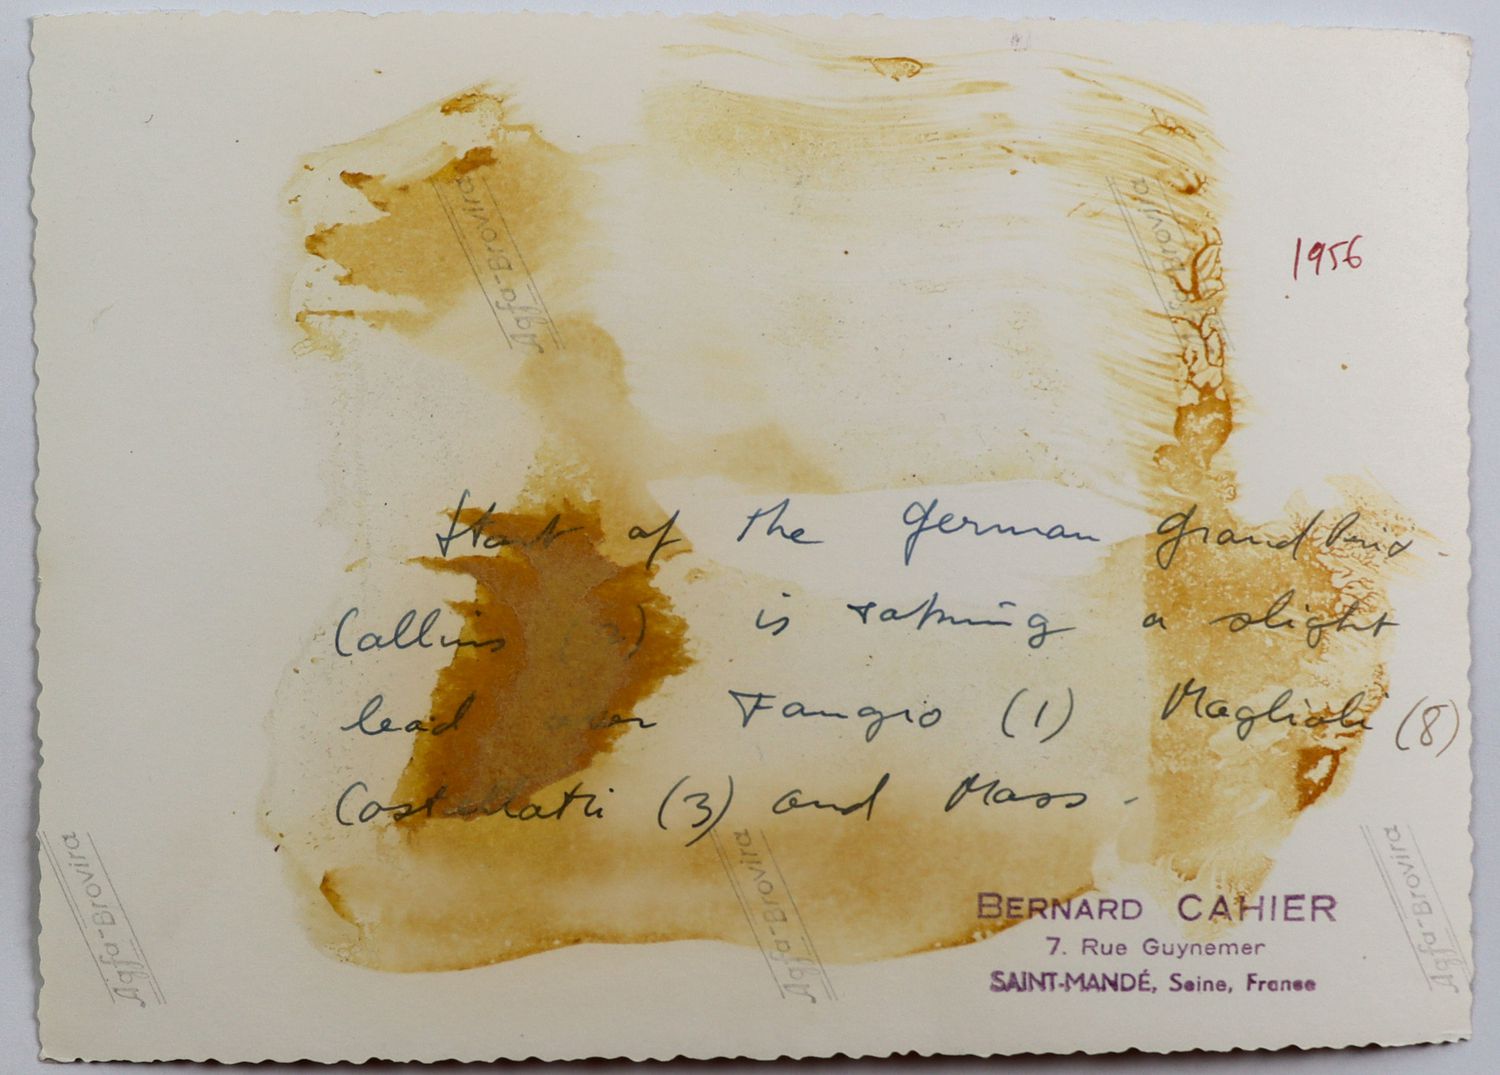 1956
Start of the German Grand Prix.
Collins ( ) is taking a slight
lead over Fangio (1) Maglioli (8)
Castellotti (3) and Moss -
BERNARD CAHIER
7. Rue Guynemer
SAINT-MANDÉ, Seine, France
Agfa-Brovira
Agfa-Brovira
Agfa-Brovira
Agfa-Brovira
Agfa-Brovira